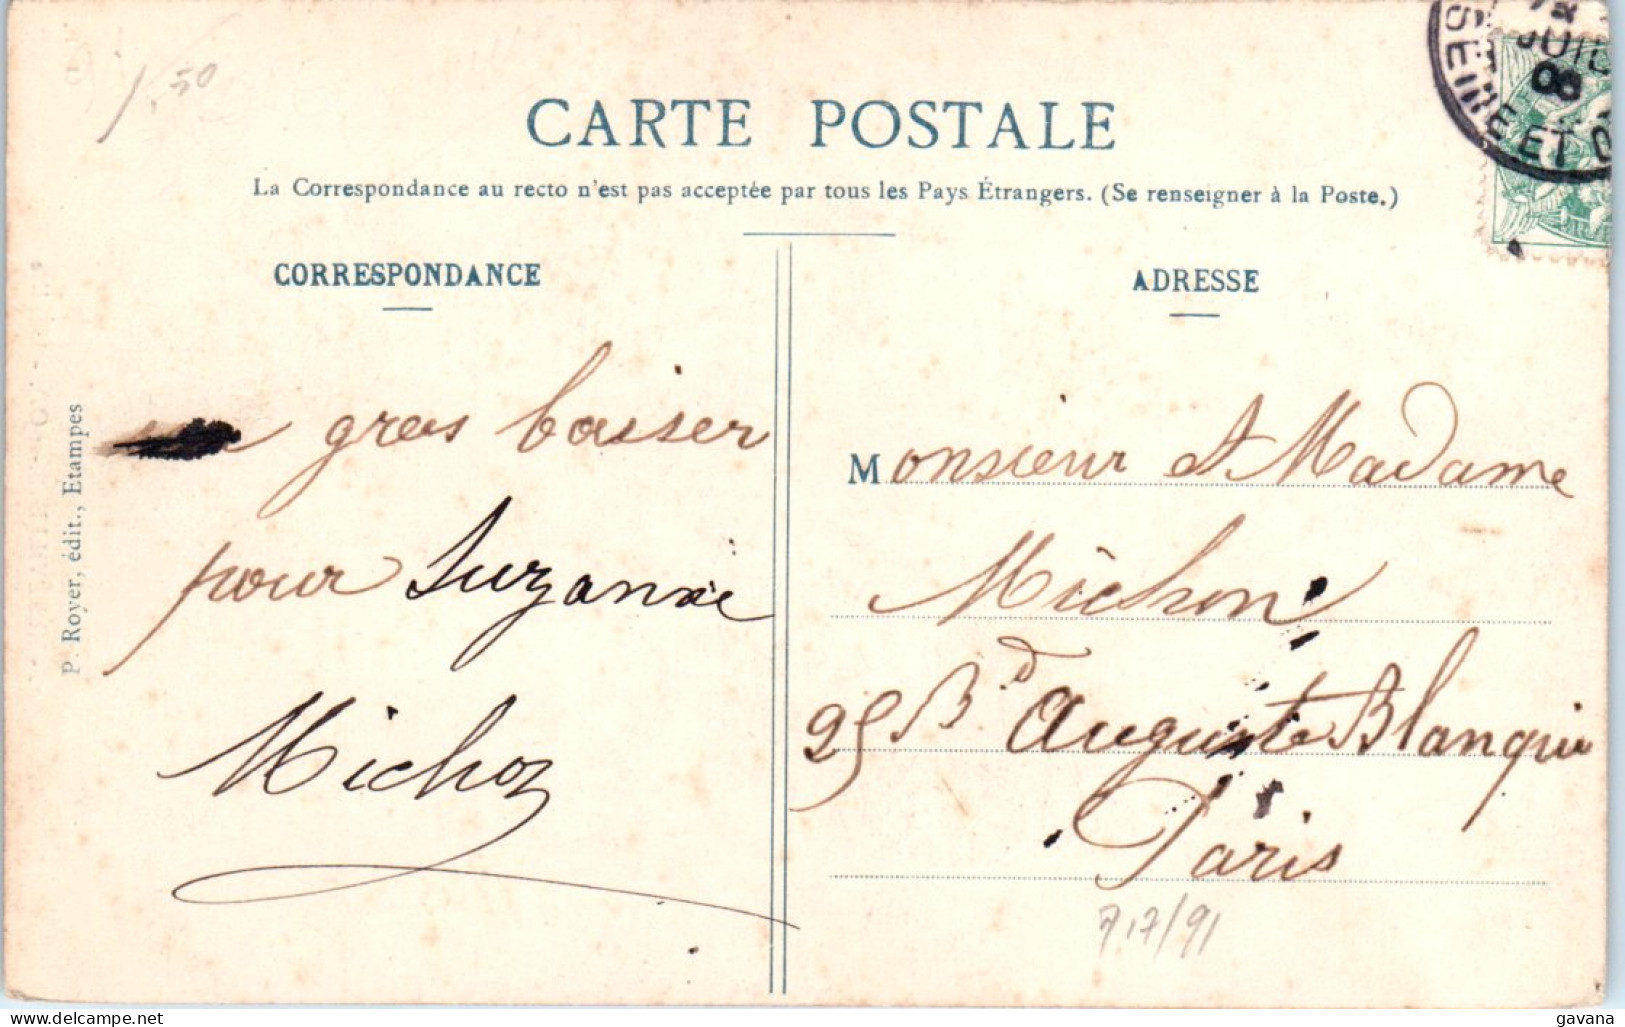 1,50
CARTE POSTALE
La Correspondance au recto n'est pas acceptée par tous les Pays Étrangers. (Se renseigner à la Poste.)
JUIL
08
SEINE ET O
CORRESPONDANCE
gros baiser
pour Suzanne
Michon
P. Royer, édit., Etampes
ADRESSE
Monsieur et Madame
Michon
25 Bd Auguste Blanqui
Paris
717/91
delcampe.net
gavana